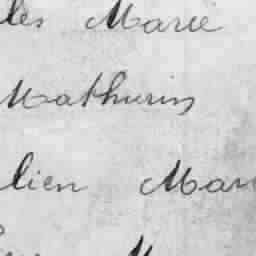 les Marie
Mathurin
lien Mar